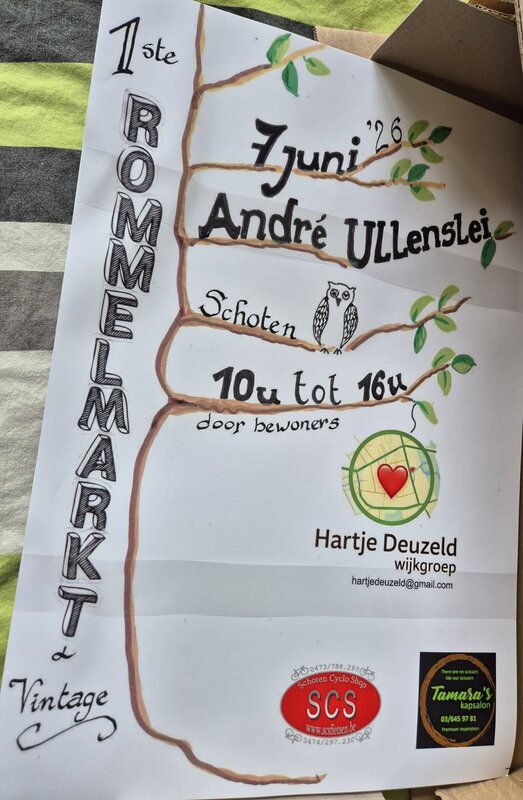 1ste
ROMMELMARKT
&
Vintage
7 juni '26
André Ullenslei
Schoten
10u tot 16u
door bewoners
Hartje Deuzeld
wijkgroep
hartjedeuzeld@gmail.com
0473/788.297
Schoten Cyclo Shop
SCS
www.scsfietsen.be
0474/297.230
There are no scissors
like our scissors
Tamara's
kapsalon
03/645 97 81
Premium inspiration